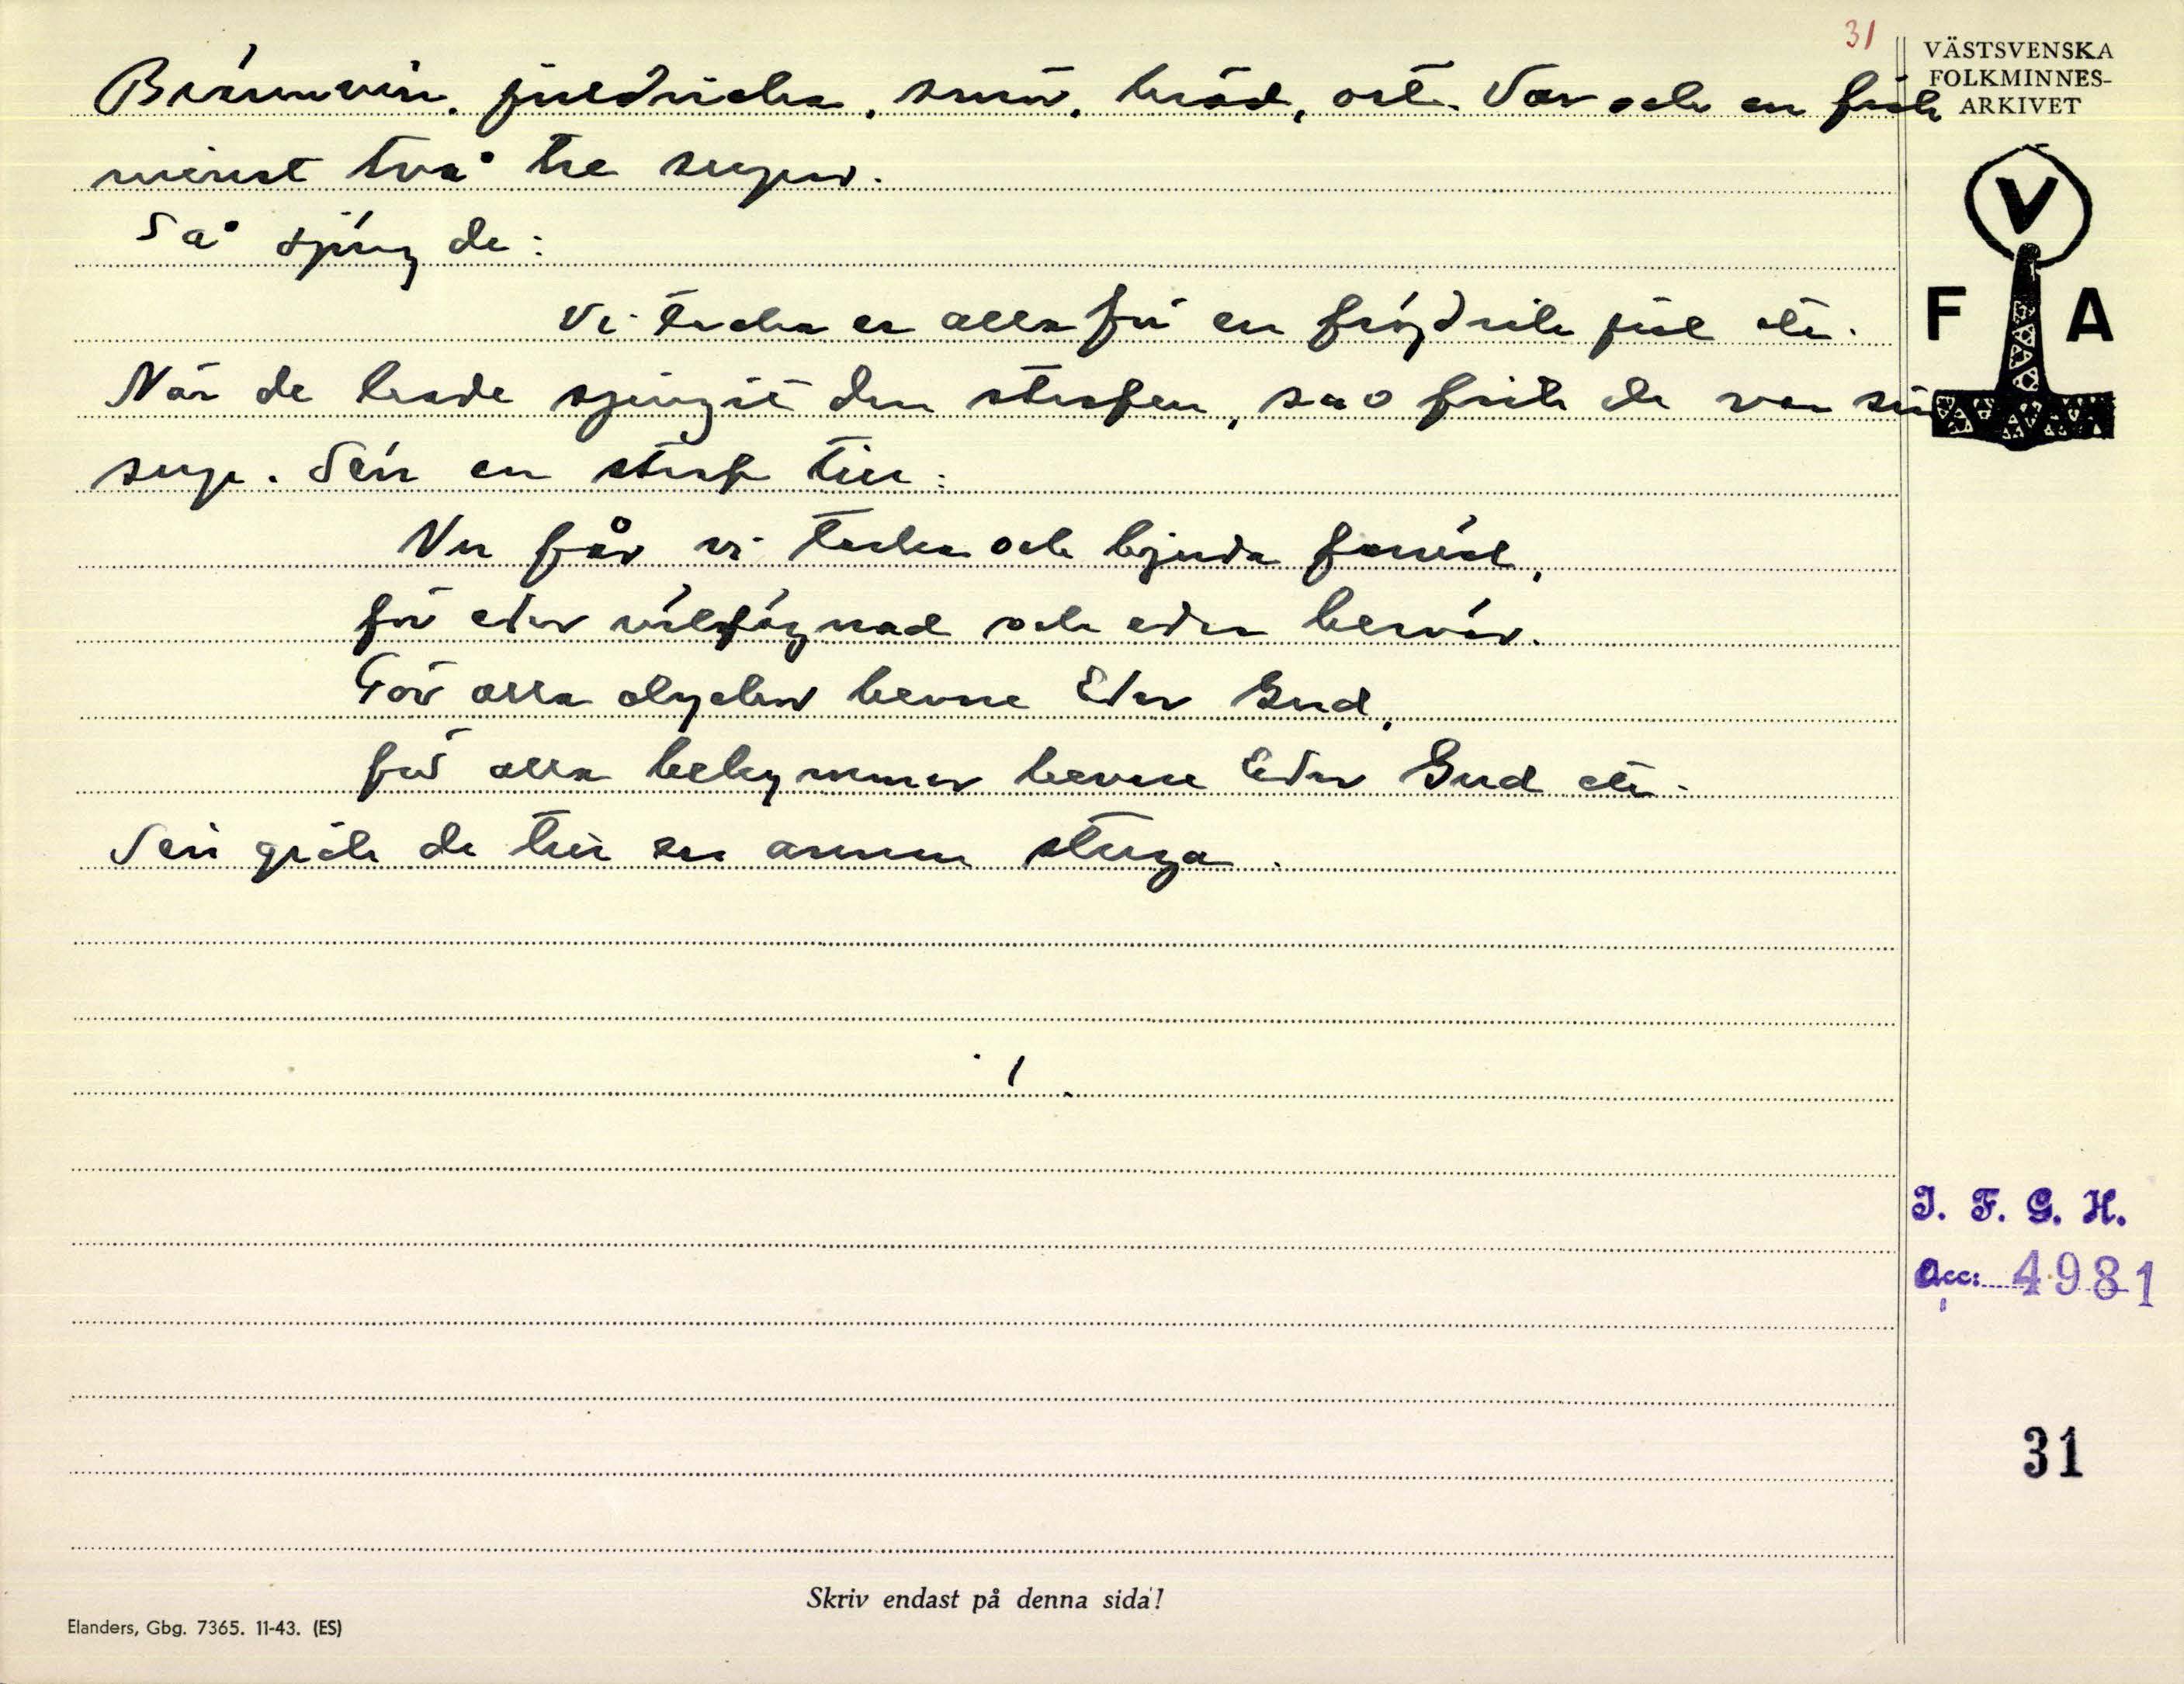 31
VÄSTSVENSKA
FOLKMINNES-
ARKIVET
Brännvin, juldricka, smör, bröd, ost. Var och en fick
minst två tre supar.
Så sjöng de:
Vi tacka er alla för en fröjdrik jul etc.
När de hade sjungit den strofen, så fick de var sin
sup. Sen en strof till:
Nu får vi tacka och bjuda farväl,
för eder välfägnad och eder besvär.
För alla olyckor bevare Eder Gud,
för alla bekymmer bevare Eder Gud etc.
Sen gick de till en annan stuga.
V
F A
I. F. G. H.
Acc: 4981
31
Skriv endast på denna sida!
Elanders, Gbg. 7365. 11-43. (ES)